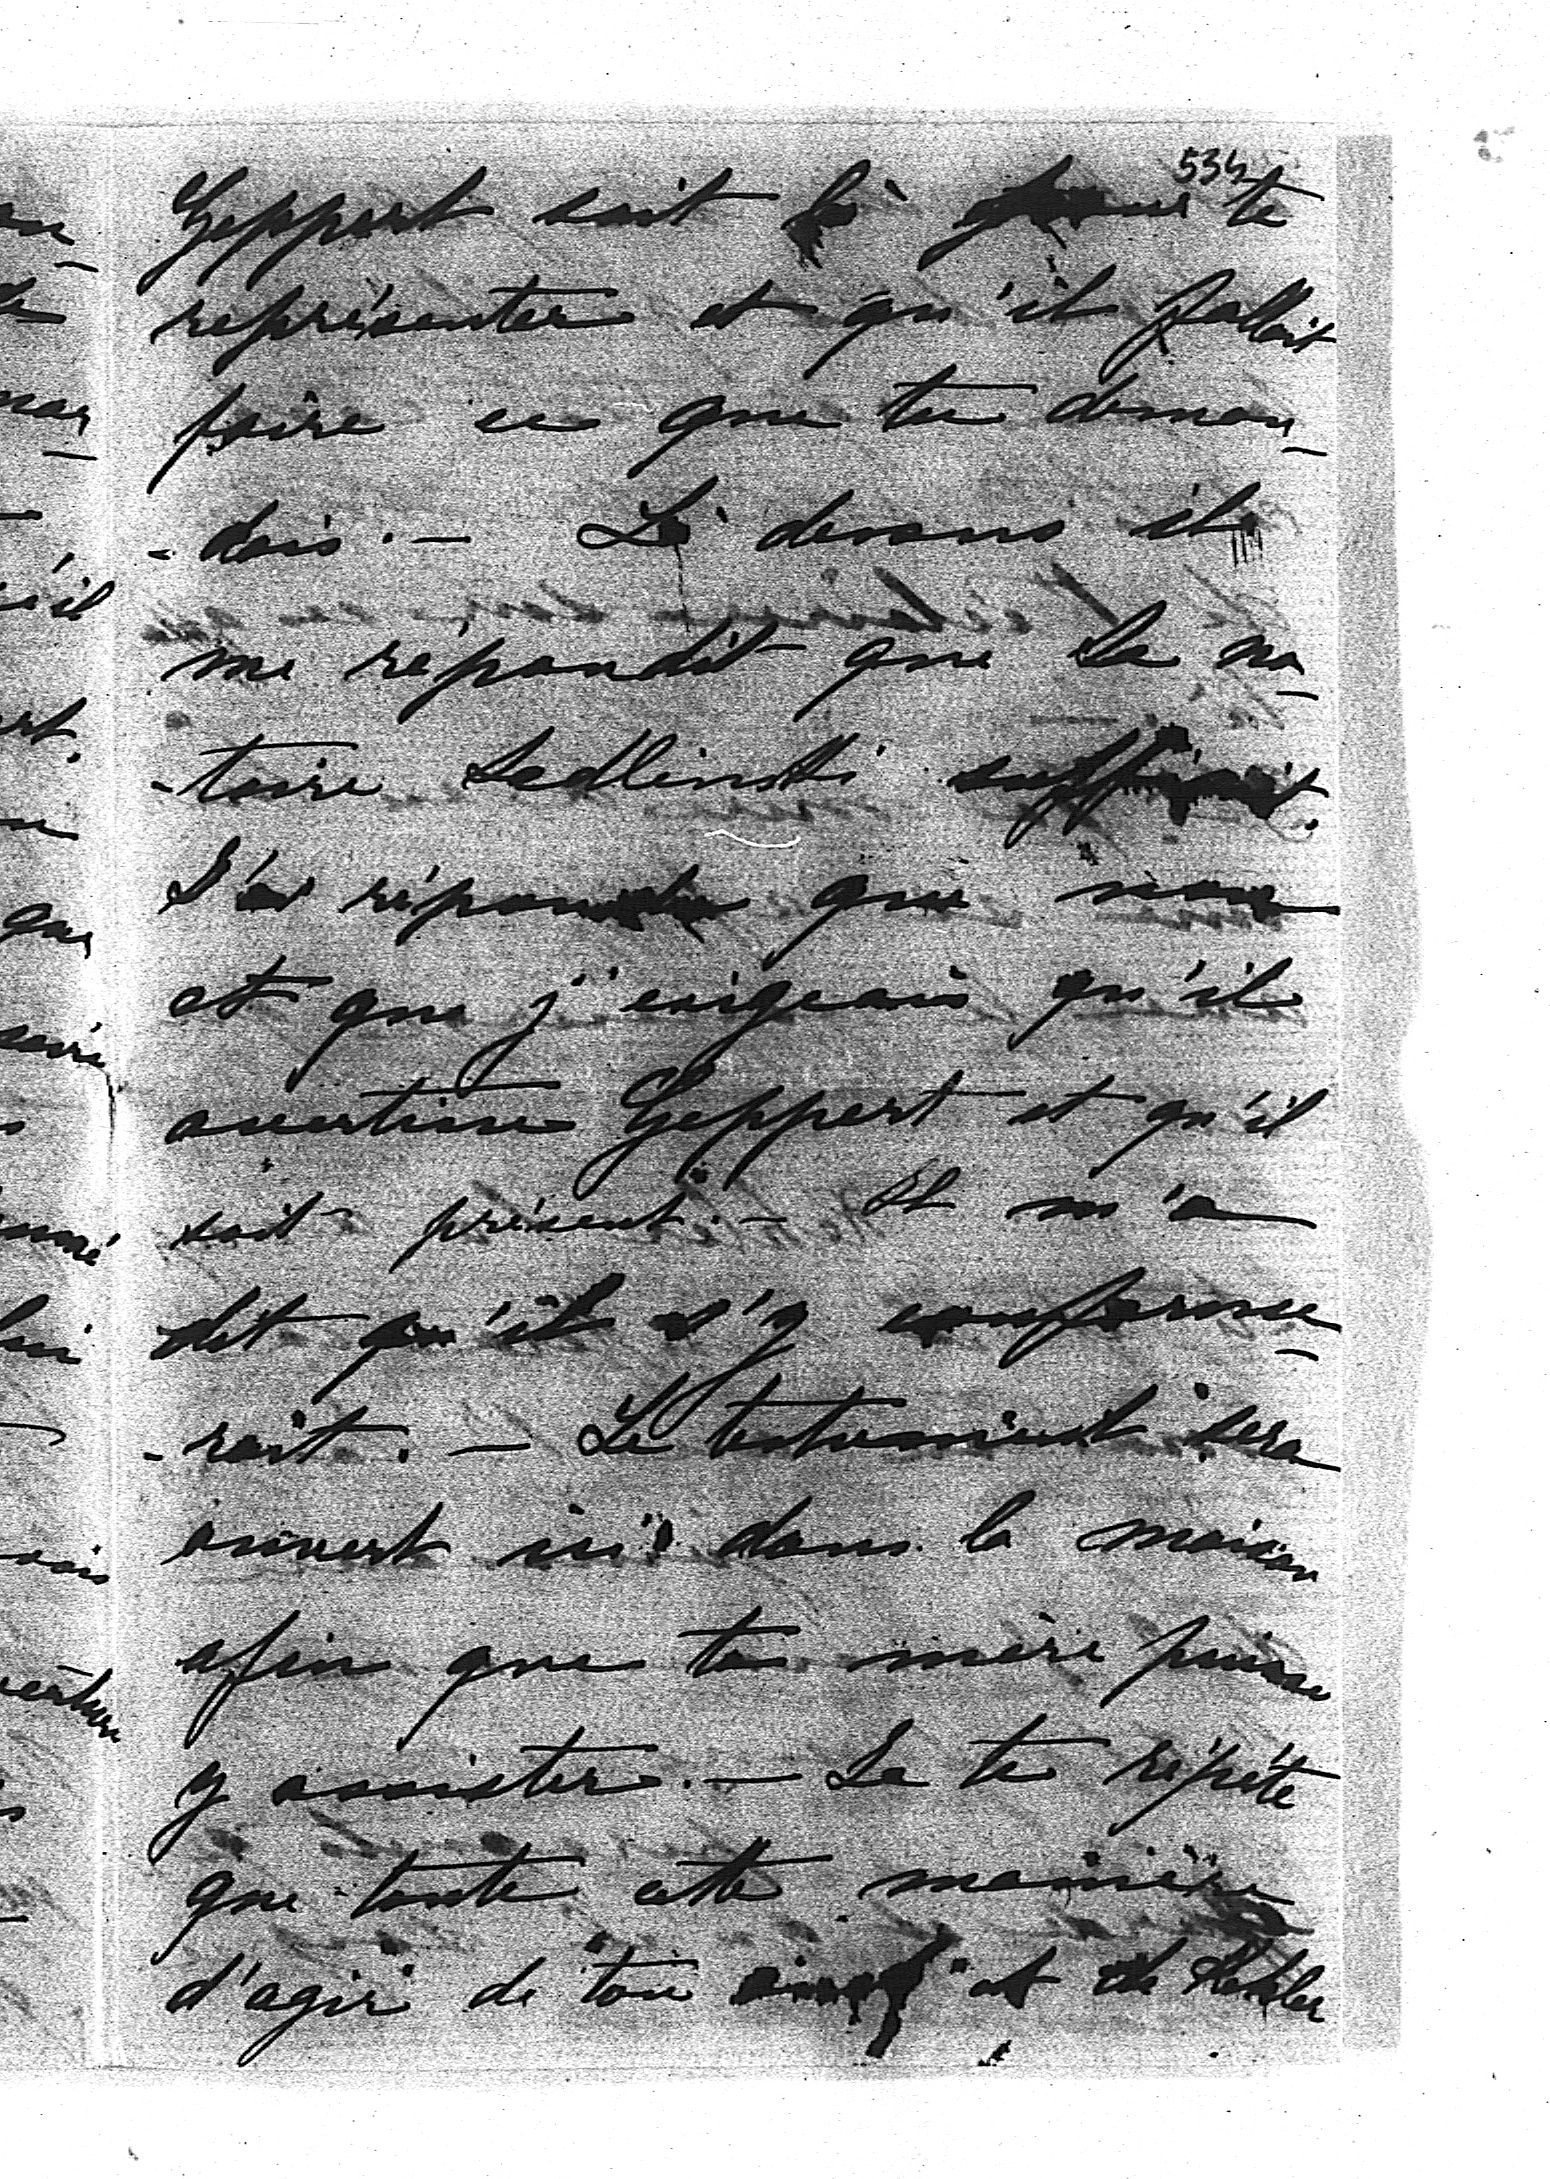 534
Geppert soit là pour te
représenter et qu'il fallait
faire ce que tu deman_
-dais. — Là dessus il
me répondit que le no_
-taire Sedlinski suffirait.
J'ai répondu que non
et que j'exigeais qu'il
avertisse Geppert et qu'il
soit présent. — Il m'a
dit qu'il s'y conforme_
-rait. — Le testament sera
ouvert ici dans la maison
afin que ta mère puisse
y assister. — Je te répète
que toute cette manière
d'agir de ton et de